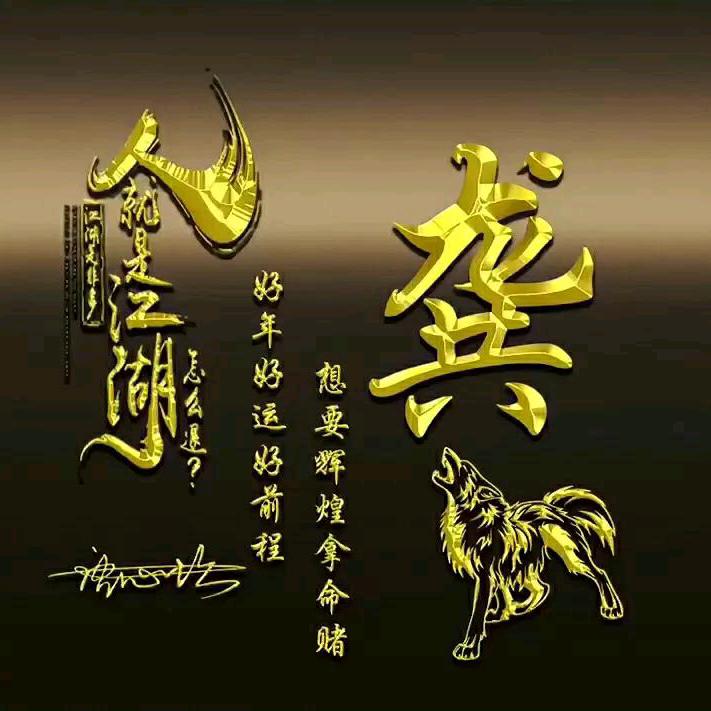 龚
想要辉煌拿命赌
好年好运好前程
人就是江湖
怎么退?
江湖是非多